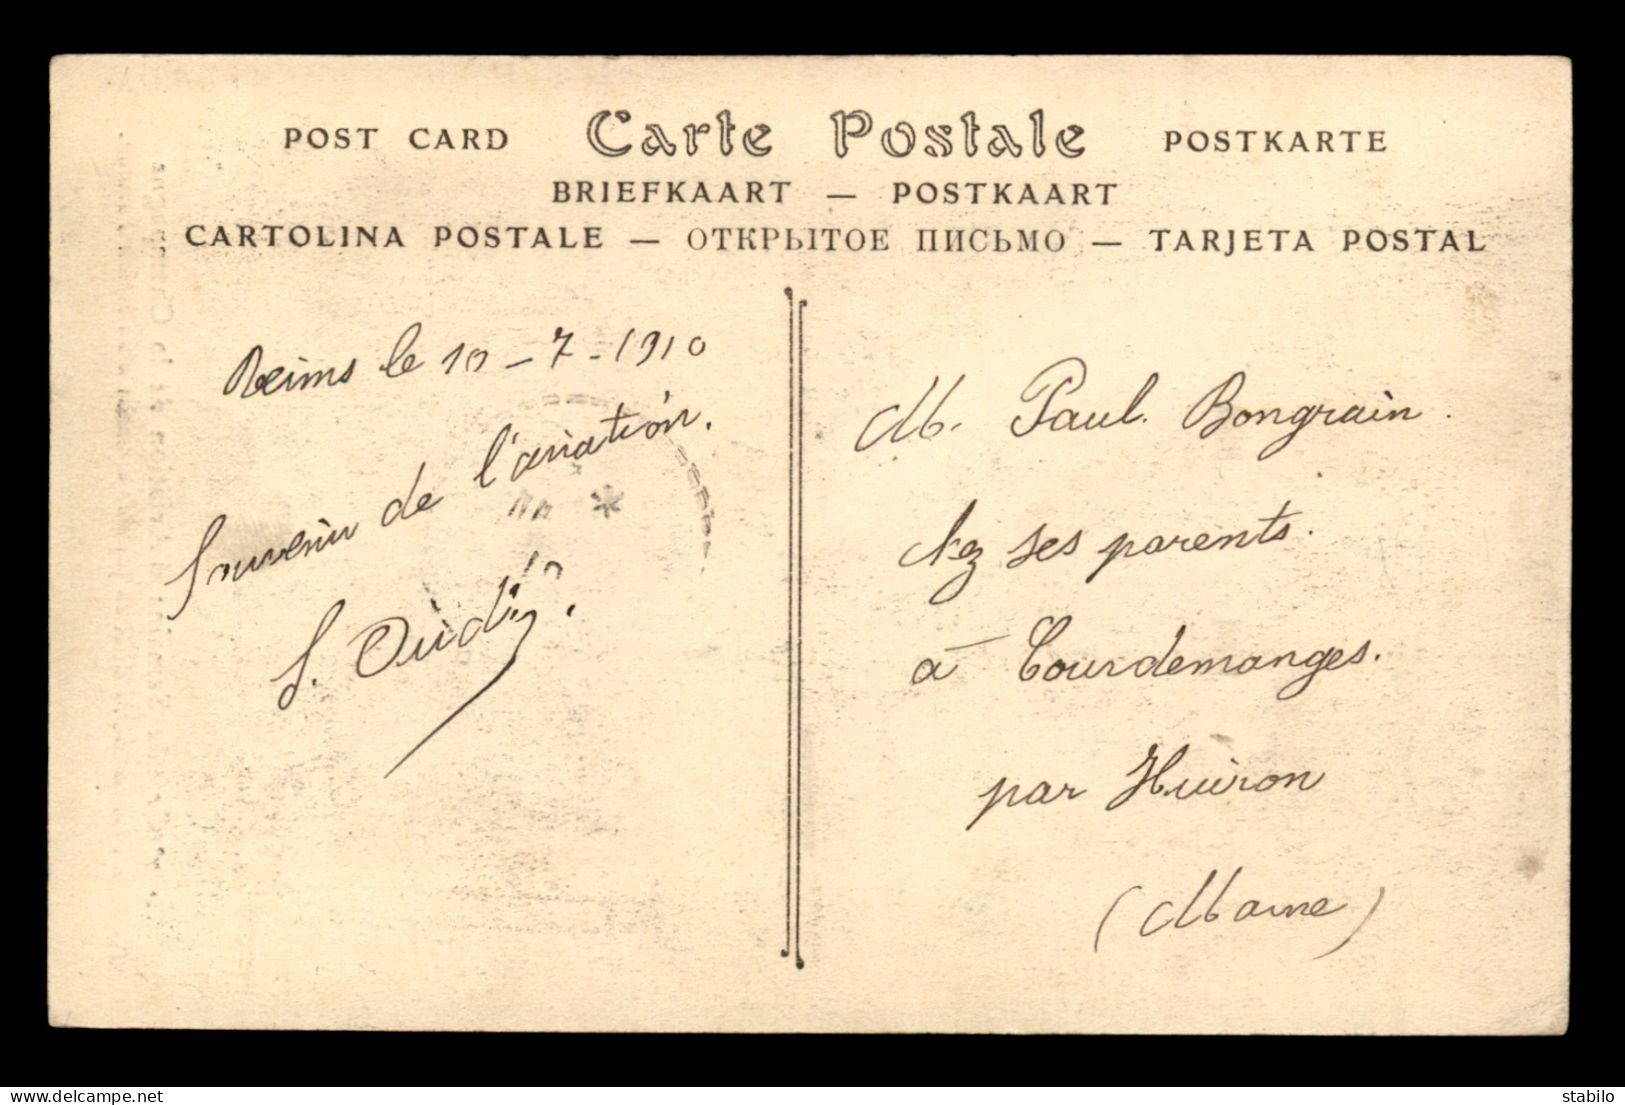 POST CARD Carte Postale POSTKARTE
BRIEFKAART — POSTKAART
CARTOLINA POSTALE — ОТКРЫТОЕ ПИСЬМО — TARJETA POSTAL
Reims le 10-7-1910
Souvenir de l'aviation.
M. Paul Bongrain.
chez ses parents.
à Courdemanges.
par Huiron
(Marne)
delcampe.net
stabilo